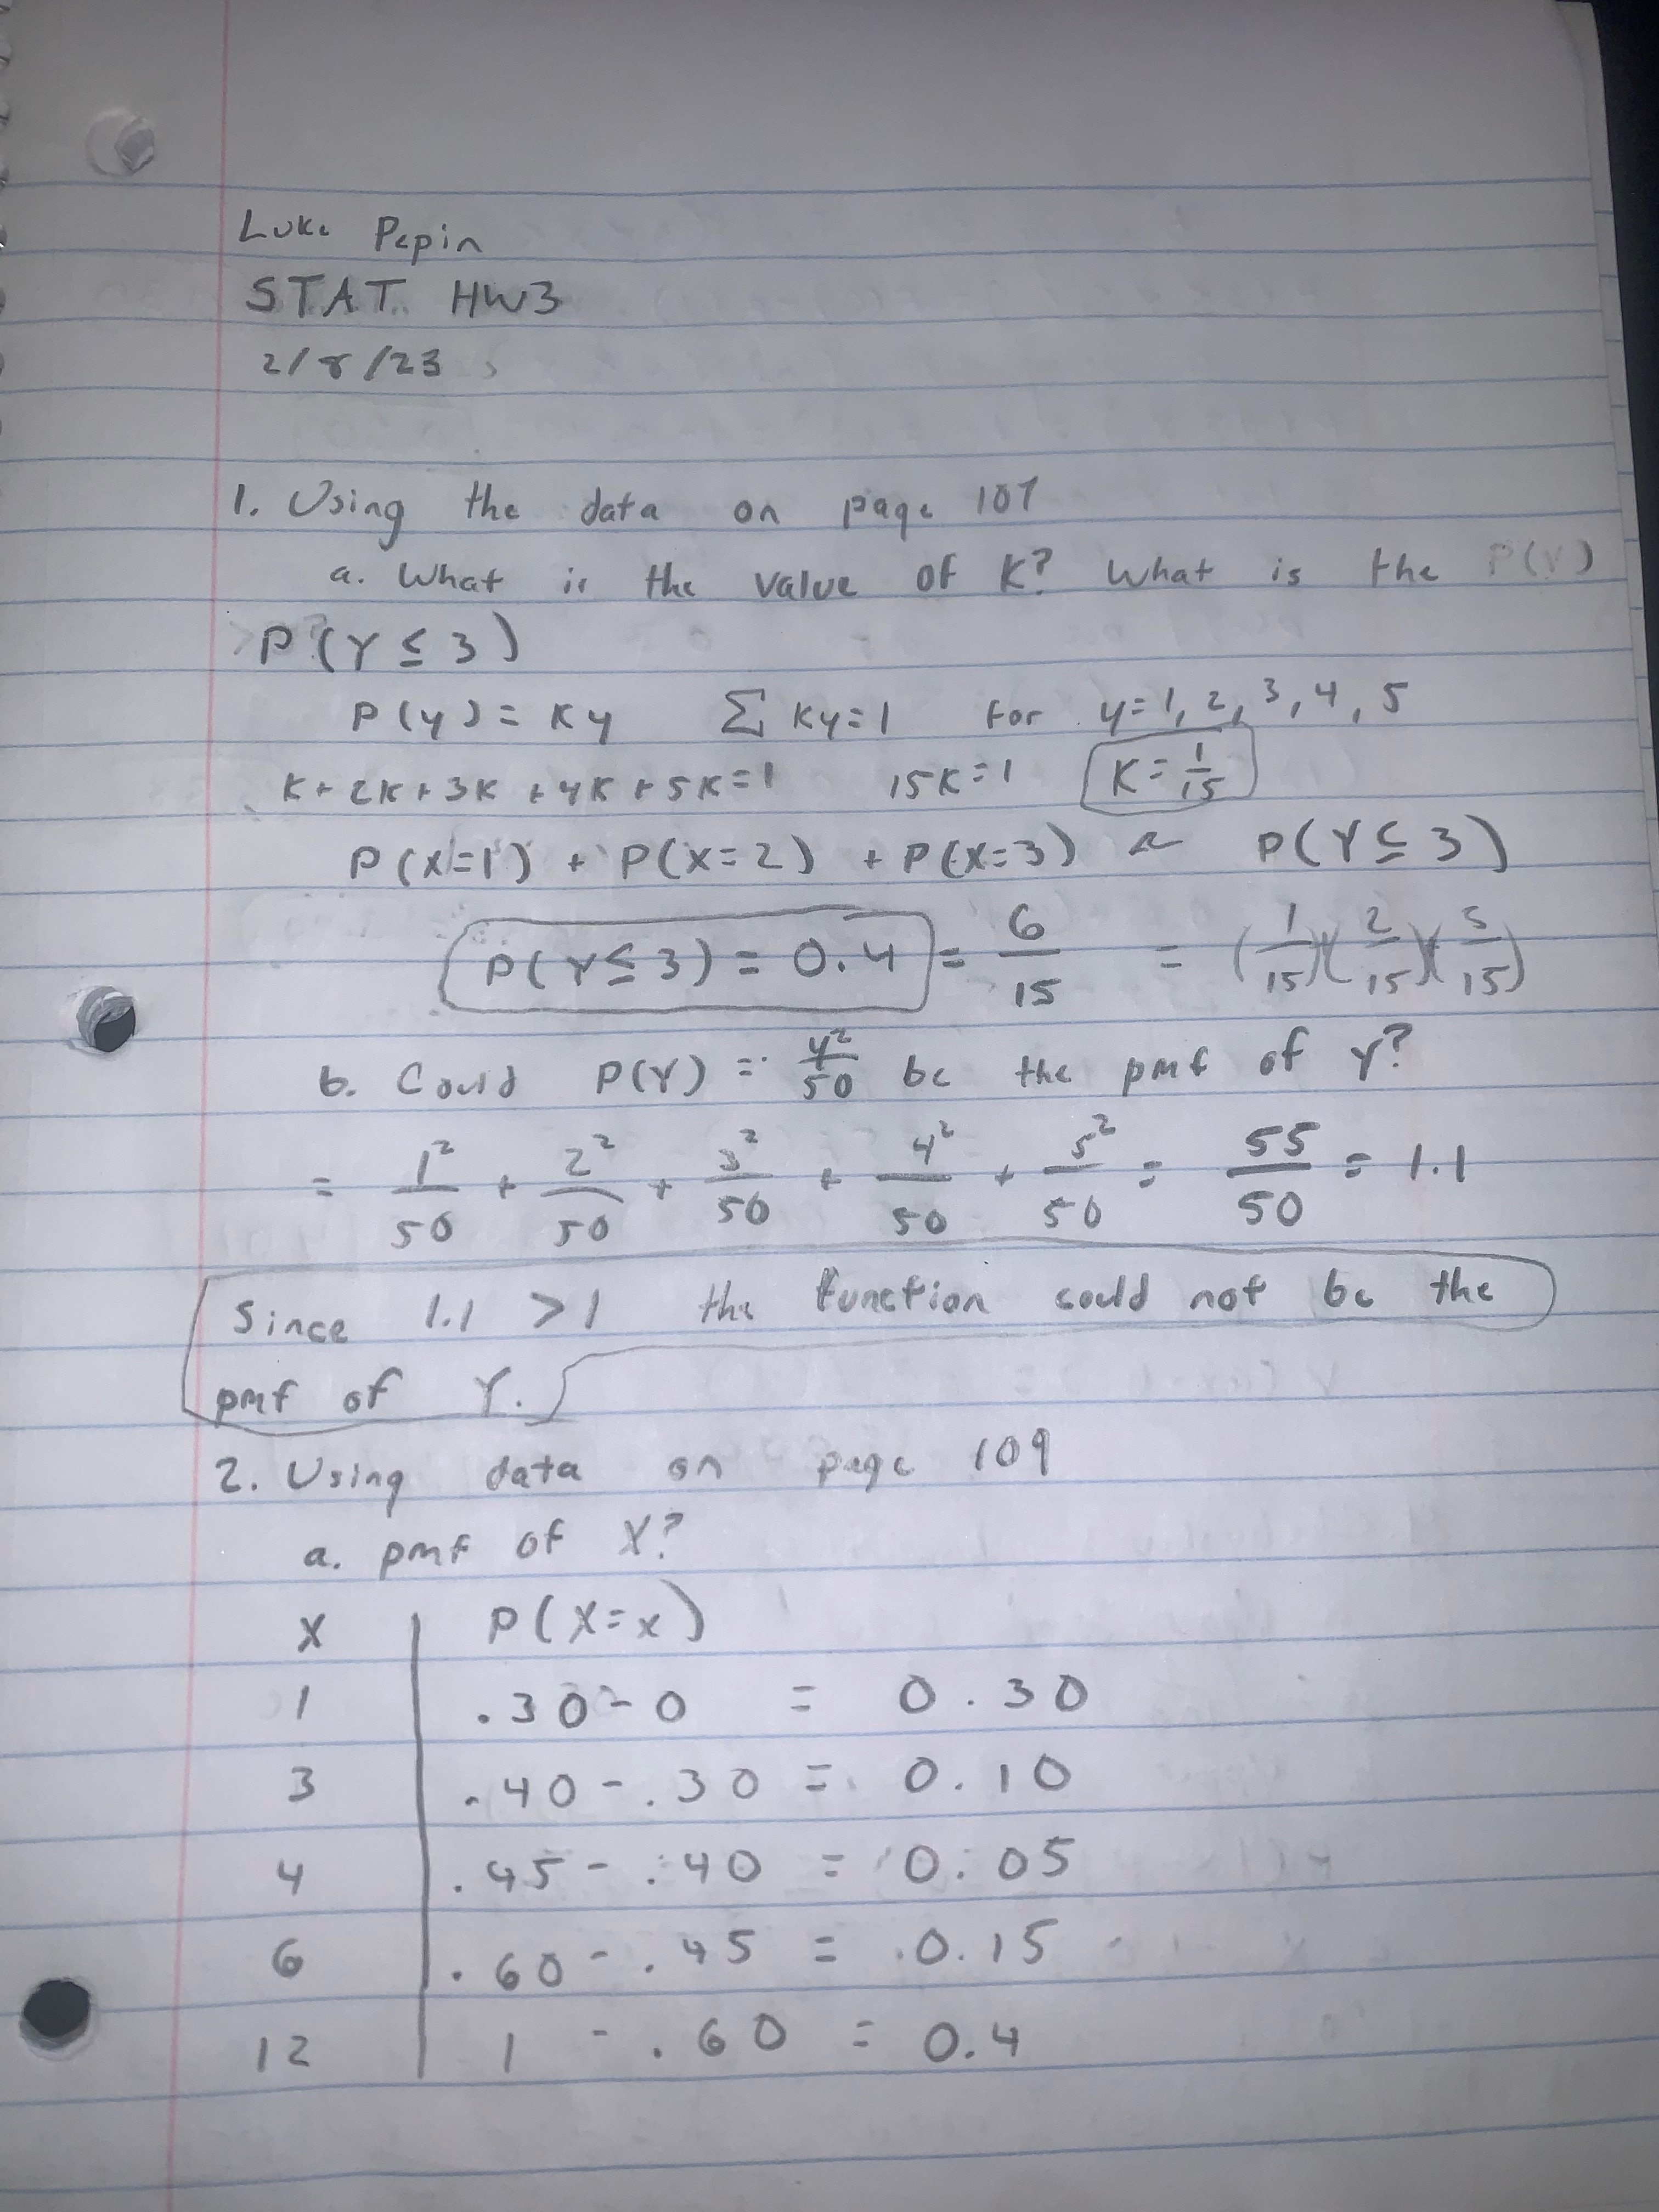 Luke Pepin
STAT. HW3
2/8/23
1. Using the data on page 107
a. What is the value of K? What is the P(Y)
P(Y ≤ 3)
P(y) = Ky ∑ Ky=1 for y=1, 2, 3, 4, 5
K+2K+3K+4K+5K=1 15K=1 K=1/15
P(X=1) + P(X=2) + P(X=3) = P(Y≤3)
P(Y≤3) = 0.4 = 6/15 = (1/15)(2/15)(3/15)
b. Could P(Y) = y²/50 be the pmf of Y?
= 1²/50 + 2²/50 + 3²/50 + 4²/50 + 5²/50 = 55/50 = 1.1
Since 1.1 > 1 the function could not be the
pmf of Y.
2. Using data on page 109
a. pmf of X?
X P(X=x)
1 .30-0 = 0.30
3 .40-.30 = 0.10
4 .45-.40 = 0.05
6 .60-.45 = 0.15
12 1-.60 = 0.4